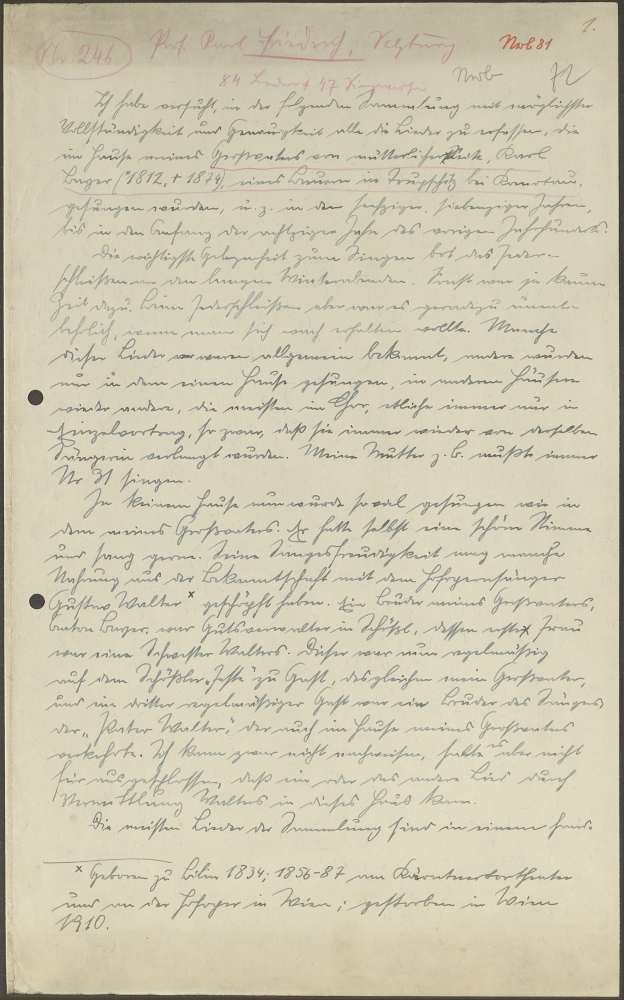 1.
Nr 246 Prof. Karl Friedrich, Salzburg Novb 81
84 Lieder + 47 Singweisen Novb 72
Ich habe versucht, in der folgenden Sammlung mit möglichster
Vollständigkeit und Genauigkeit alle die Lieder zu erfassen, die
im Hause meines Großvaters von mütterlicher Seite, Karl
(*1812, † 1874), eines Bauern in Trupschitz bei Komotau,
gesungen wurden, u. z. in den sechziger, siebenziger Jahren,
bis in den Anfang der achtziger Jahre des vorigen Jahrhunderts.
Die wichtigste Gelegenheit zum Singen bot das Feder-
schleißen an den langen Winterabenden. Sonst war ja kaum
Zeit dazu. Beim Federschleißen aber war es geradezu unent-
behrlich, wenn man sich wach erhalten wollte. Manche
dieser Lieder waren allgemein bekannt, andere wurden
nur in dem einen Hause gesungen, in anderen Häusern
wieder andere, die meisten im Chor, etliche immer nur in
Einzelvortrag, so zwar, daß sie immer wieder von derselben
Sängerin verlangt wurden. Meine Mutter z. B. mußte immer
Nr 31 singen.
In keinem Hause nun wurde soviel gesungen wie in
dem meines Großvaters. Er hatte selbst eine schöne Stimme
und sang gerne. Seine Sangesfreudigkeit mag manche
Nahrung aus der Bekanntschaft mit dem Hofopernsänger
Gustav Walter x geschöpft haben. Ein Bruder meines Großvaters,
Anton, war Gutsverwalter in Schößl, dessen erste Frau
war eine Schwester Walters. Dieser war nun regelmäßig
auf dem Schößler „Feste" zu Gast, desgleichen mein Großvater,
und ein dritter regelmäßiger Gast war ein Bruder des Sängers
der „Pater Walter", der auch im Hause meines Großvaters
verkehrte. Ich kann zwar nicht nachweisen, halte es aber nicht
für ausgeschlossen, daß ein oder das andere Lied durch
Vermittlung Walters in dieses Haus kam.
Die meisten Lieder der Sammlung sind in einem hand-
x Geboren zu Bilin 1834; 1856-87 am Kärntnertortheater
und an der Hofoper in Wien; gestorben in Wien
1910.